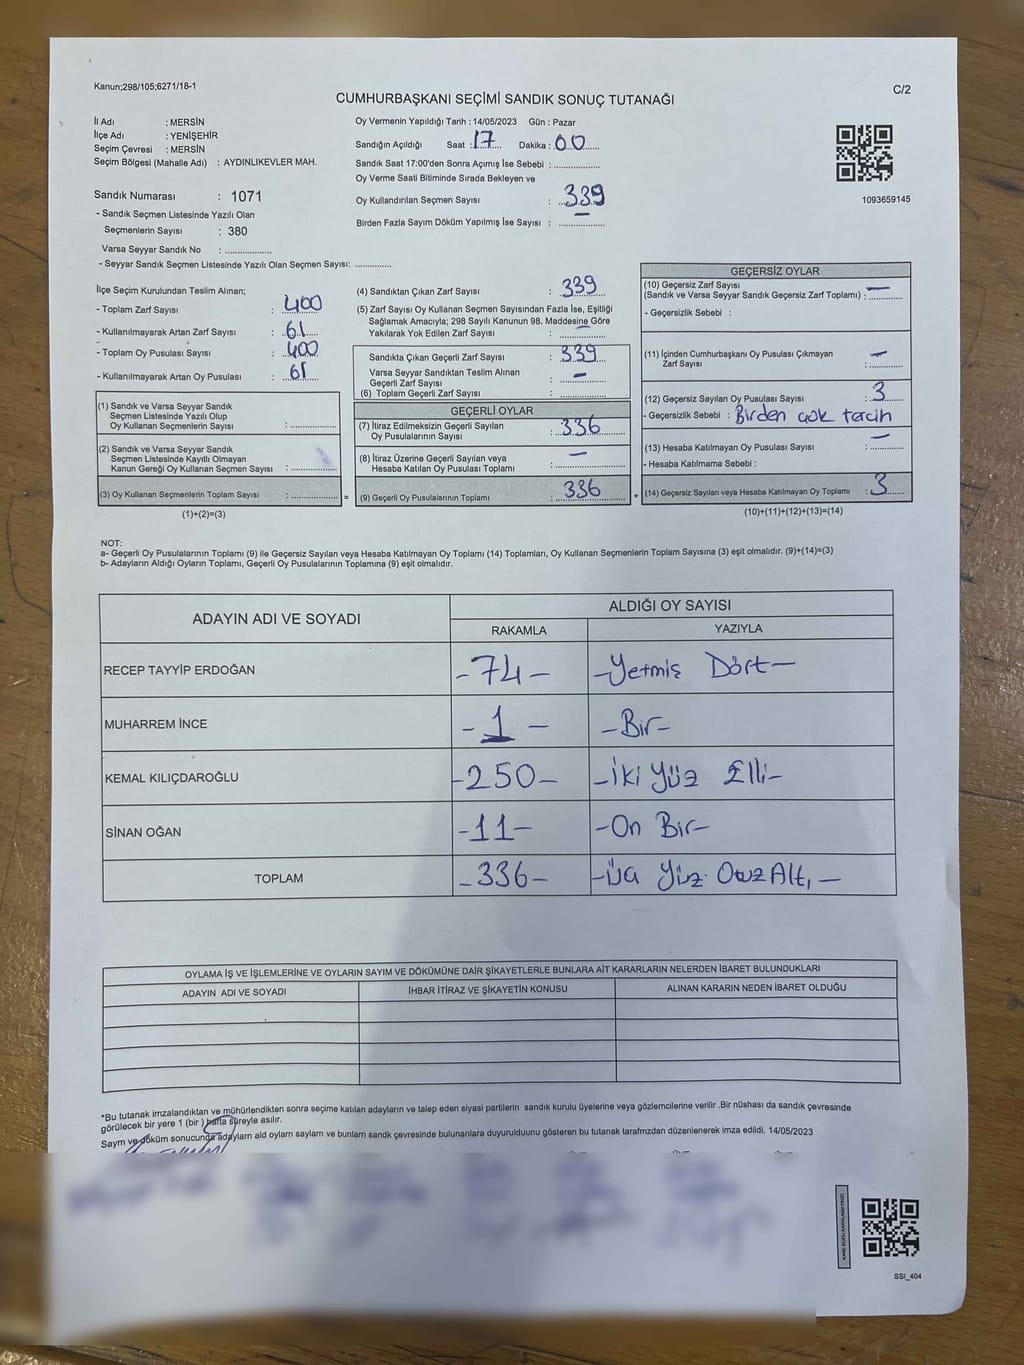 Kanun;298/105;6271/18-1
C/2
CUMHURBAŞKANI SEÇİMİ SANDIK SONUÇ TUTANAĞI
İl Adı : MERSİN
İlçe Adı : YENİŞEHİR
Seçim Çevresi : MERSİN
Seçim Bölgesi (Mahalle Adı) : AYDINLIKEVLER MAH.
Sandık Numarası : 1071
- Sandık Seçmen Listesinde Yazılı Olan
Seçmenlerin Sayısı : 380
Varsa Seyyar Sandık No : ...............
- Seyyar Sandık Seçmen Listesinde Yazılı Olan Seçmen Sayısı: ............
Oy Vermenin Yapıldığı Tarih : 14/05/2023 Gün : Pazar
Sandığın Açıldığı Saat : 17 Dakika : 00
Sandık Saat 17:00'den Sonra Açımış İse Sebebi : ...............
Oy Verme Saati Bitiminde Sırada Bekleyen ve
Oy Kullandırılan Seçmen Sayısı : 339
Birden Fazla Sayım Döküm Yapılmış İse Sayısı : ...............
1093659145
İlçe Seçim Kurulundan Teslim Alınan;
- Toplam Zarf Sayısı : 400
- Kullanılmayarak Artan Zarf Sayısı : 61
- Toplam Oy Pusulası Sayısı : 400
- Kullanılmayarak Artan Oy Pusulası : 61
(1) Sandık ve Varsa Seyyar Sandık
Seçmen Listesinde Yazılı Olup
Oy Kullanan Seçmenlerin Sayısı : ...............
(2) Sandık ve Varsa Seyyar Sandık
Seçmen Listesinde Kayıtlı Olmayan
Kanun Gereği Oy Kullanan Seçmen Sayısı : ...............
(3) Oy Kullanan Seçmenlerin Toplam Sayısı : ............... =
(1)+(2)=(3)
(4) Sandıktan Çıkan Zarf Sayısı : 339
(5) Zarf Sayısı Oy Kullanan Seçmen Sayısından Fazla İse, Eşitliği
Sağlamak Amacıyla; 298 Sayılı Kanunun 98. Maddesine Göre
Yakılarak Yok Edilen Zarf Sayısı : —
Sandıkta Çıkan Geçerli Zarf Sayısı : 339
Varsa Seyyar Sandıktan Teslim Alınan
Geçerli Zarf Sayısı : —
(6) Toplam Geçerli Zarf Sayısı : ...............
GEÇERLİ OYLAR
(7) İtiraz Edilmeksizin Geçerli Sayılan
Oy Pusulalarının Sayısı : 336
(8) İtiraz Üzerine Geçerli Sayılan veya
Hesaba Katılan Oy Pusulası Toplamı : —
(9) Geçerli Oy Pusulalarının Toplamı : 336 +
GEÇERSİZ OYLAR
(10) Geçersiz Zarf Sayısı
(Sandık ve Varsa Seyyar Sandık Geçersiz Zarf Toplamı) : —
- Geçersizlik Sebebi :
(11) İçinden Cumhurbaşkanı Oy Pusulası Çıkmayan
Zarf Sayısı : —
(12) Geçersiz Sayılan Oy Pusulası Sayısı : 3
- Geçersizlik Sebebi : Birden çok tercih
(13) Hesaba Katılmayan Oy Pusulası Sayısı : —
- Hesaba Katılmama Sebebi :
(14) Geçersiz Sayılan veya Hesaba Katılmayan Oy Toplamı : 3
(10)+(11)+(12)+(13)=(14)
NOT:
a- Geçerli Oy Pusulalarının Toplamı (9) ile Geçersiz Sayılan veya Hesaba Katılmayan Oy Toplamı (14) Toplamları, Oy Kullanan Seçmenlerin Toplam Sayısına (3) eşit olmalıdır. (9)+(14)=(3)
b- Adayların Aldığı Oyların Toplamı, Geçerli Oy Pusulalarının Toplamına (9) eşit olmalıdır.
ADAYIN ADI VE SOYADI ALDIĞI OY SAYISI
RAKAMLA YAZIYLA
RECEP TAYYİP ERDOĞAN -74- -Yetmiş Dört-
MUHARREM İNCE -1- -Bir-
KEMAL KILIÇDAROĞLU -250- -İki Yüz Elli-
SİNAN OĞAN -11- -On Bir-
TOPLAM -336- -Üç Yüz Otuz Altı-
OYLAMA İŞ VE İŞLEMLERİNE VE OYLARIN SAYIM VE DÖKÜMÜNE DAİR ŞİKAYETLERLE BUNLARA AİT KARARLARIN NELERDEN İBARET BULUNDUKLARI
ADAYIN ADI VE SOYADI İHBAR İTİRAZ VE ŞİKAYETİN KONUSU ALINAN KARARIN NEDEN İBARET OLDUĞU
*Bu tutanak imzalandıktan ve mühürlendikten sonra seçime katılan adayların ve talep eden siyasi partilerin sandık kurulu üyelerine veya gözlemcilerine verilir .Bir nüshası da sandık çevresinde
görülecek bir yere 1 (bir ) hafta süreyle asılır.
Sayım ve döküm sonucunda adayların ald oyların saylam ve bunlarn sandk çevresinde bulunanlara duyurulduunu gösteren bu tutanak tarafmzdan düzenlenerek imza edildi. 14/05/2023
SSI_404